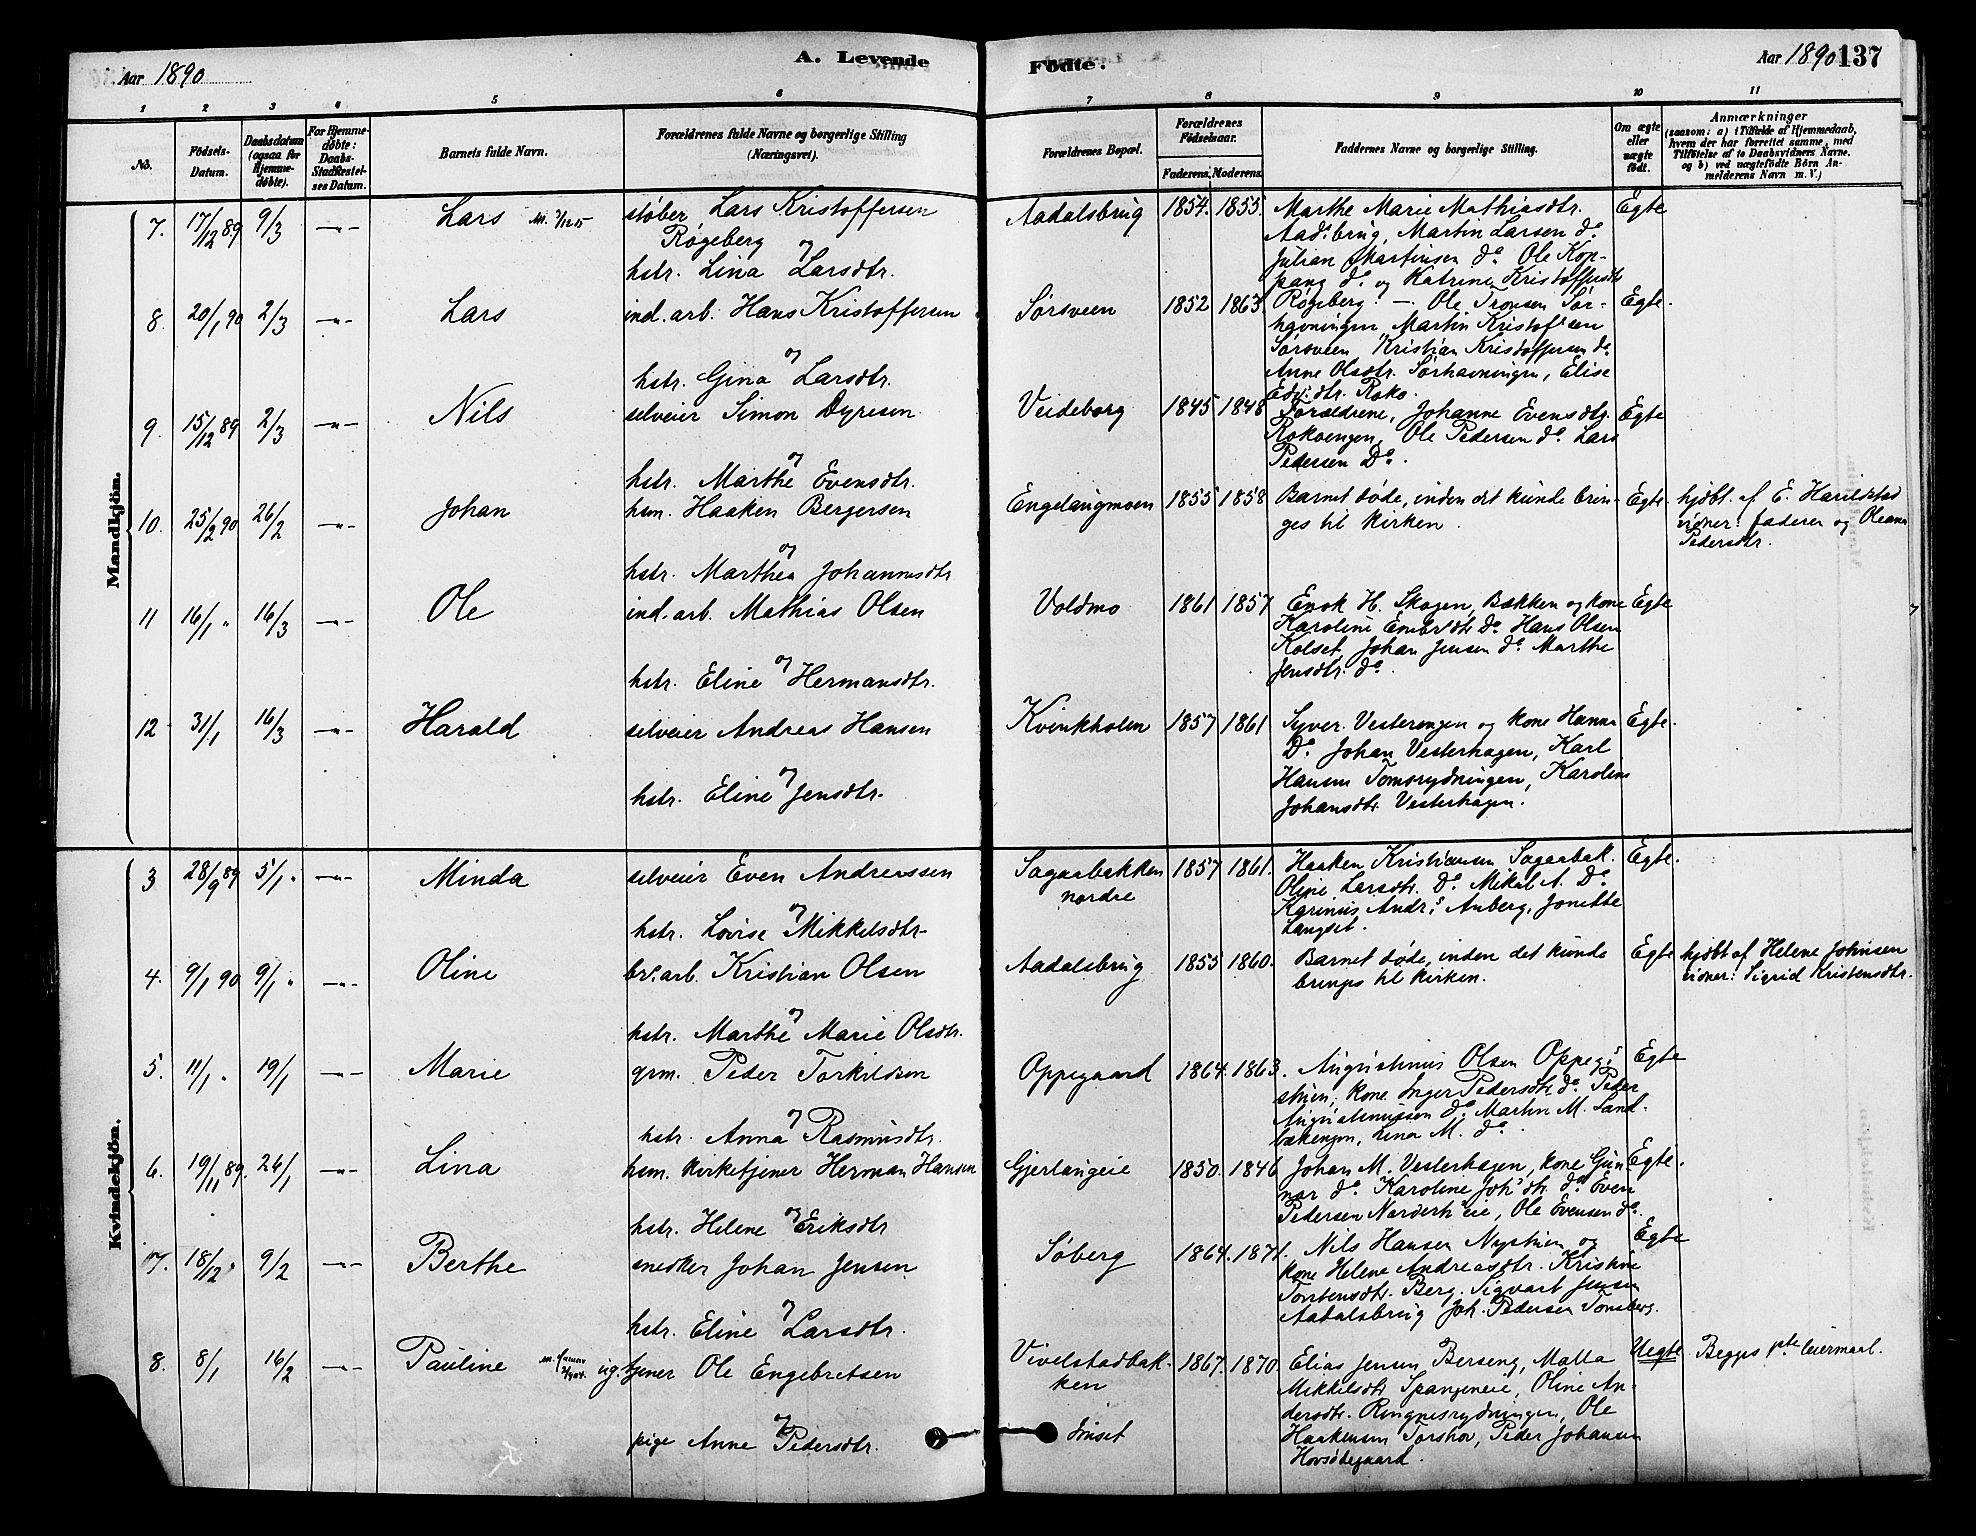 Aar 1890
A. Levende
Fødte.
Aar 1890
137
1 2 3 4 5 6 7 8 9 10 11
No.
Fødsels-Datum.
Daabsdatum (ogsaa for Hjemmedøbte).
For Hjemmedøbte: Daabs-Stadfæstelses Datum.
Barnets fulde Navn.
Forældrenes fulde Navne og borgerlige Stilling (Næringsvei).
Forældrenes Bopæl.
Forældrenes Fødselsaar.
Faderens. Moderens.
Faddernes Navne og borgerlige Stilling.
Om ægte eller uægte født.
Anmærkninger
(saasom: a) i Tilfælde af Hjemmedaab, hvem der har forrettet samme, med Tilføielse af to Daabsvidners Navne, og b) ved uægtefødte Børn Anmelderens Navn m. V.)
Mandkjön.
7. 17/12 89 9/3 —"— Lars støber Lars Kristoffersen Aadalsbrug 1854. 1855. Marthe Marie Mathiasdtr. Egte
Røgeberg og Aads.brug, Martin Larsen do
hstr. Lina Larsdtr. Julian Martinsen do. Ole Kop-
pang do. og Katrine Kristoffersdtr
8. 20/1 90 2/3 —"— Lars ind. arb. Hans Kristoffersen Sørsveen 1852 1863. Røgeberg. — Ole Tronsen Sør- Egte.
havningen, Martin Kristofsen
og Sørsveen Kristian Kristoffersen do.
hstr. Gina Larsdtr. Anne Olsdtr. Sørhavningen, Elise
Edv.dtr. Roko.
9. 15/12 89 2/3 —"— Nils selveier Simon Dyresen Veideborg 1845 1848 Forældrene, Johanne Evensdtr. Egte
Rokoengen, Ole Pedersen do. Lars
og Pedersen Do.
hstr. Marthe Evensdtr.
10. 25/2 90 26/2 —"— Johan hsm. Haaken Bergersen Engelaugmoen 1855 1858 Barnet døde, inden det kunde brin- Egte. hjdbt. af E. Harildstad
ges til kirken. vidner: faderen og Oleana
og Pedersdtr.
hstr. Marthea Johannesdtr
11 16/1 " 16/3 —"— Ole ind. arb. Mathias Olsen Voldmo 1861 1857 Enok H. Skogen, Bækken og kone Egte
Karoline Embrdtr Do. Hans Olsen
og Kolset, Johan Jensen do. Marthe
hstr. Eline Hermansdtr. Jensdtr. do.
12 31/1 16/3 —"— Harald selveier Andreas Hansen Kvinkholen 1857 1861 Syver Vesterengen og kone Hanna Egte.
Do. Johan Vesterhagen, Karl
og Hansen Tomsrydningen, Karoline
hstr. Eline Jensdtr. Johansdtr Vesterhagen.
Kvindekjön.
3 28/9 89 5/1 " —"— Minda selveier Even Andreassen Sagaabakken 1857 1861. Haaken Kristiansen Sagaabak. Egte.
nordre Oline Larsdtr. Do. Mikal A. Do.
og Karinus Andrs. Auberg, Jonette
hstr. Lovise Mikkelsdtr Langset.
4. 9/1 90 9/1 " —"— Oline br.arb. Kristian Olsen Aadalsbrug 1855 1860. Barnet døde, inden det kunde Egte hjdbt af Helene Johnsen
bringes til kirken. vidner: Sigrid Kristensdtr.
og
hstr. Marthe Marie Olsdtr.
5. 11/1 " 19/1 —"— Marie grm. Peder Torkildsen Oppegaard 1864. 1863. Augustinus Olsen Oppegs Egte
stuen, kone Inger Pedersdtr. do. Peder
og Augustinussen do. Martin M. Sand-
hstr. Anna Rasmusdtr. bækengen, Lina M. do
6. 19/11 89. 26/1 —"— Lina hsm. kirketjener Herman Hansen Gjerlaugeie 1850. 1846 Johan M. Vesterhagen, kone Gun- Egte.
nor do. Karoline Johs dtr. do. Even
og Pedersen Norderheie, Ole Evensen do.
hstr. Helene Eriksdtr
7. 18/12 " 9/2 —"— Berthe snedker Johan Jensen Søberg 1864. 1871. Nils Hansen Nystuen og Egte
kone Helene Andreasdtr. Kristine
og Torstensdtr. Berg. Sigvart Jensen
hstr. Eline Larsdtr. Aadalsbrug Joh. Pedersen Tomsberg.
8. 8/1 16/2 —"— Pauline ug. tjener Ole Engebretsen Vivelstadbak- 1867. 1870. Elias Jensen Berseng, Malla Uegte Begges 1ste leiermaal.
ken Mikkelsdtr Spangeneie, Oline An-
og dersdtr. Ringnesrydningen, Ole
pige Anne Pedersdtr. Imset Haakensen Torshov, Peder Johansen
Hovsødegaard.